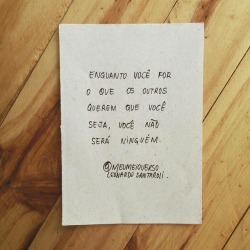 ENQUANTO VOCÊ FOR
O QUE OS OUTROS
QUEREM QUE VOCÊ
SEJA, VOCÊ NÃO
SERÁ NINGUÉM.
@MEUMEIOVERSO
LEONARDO SANTAROLI.